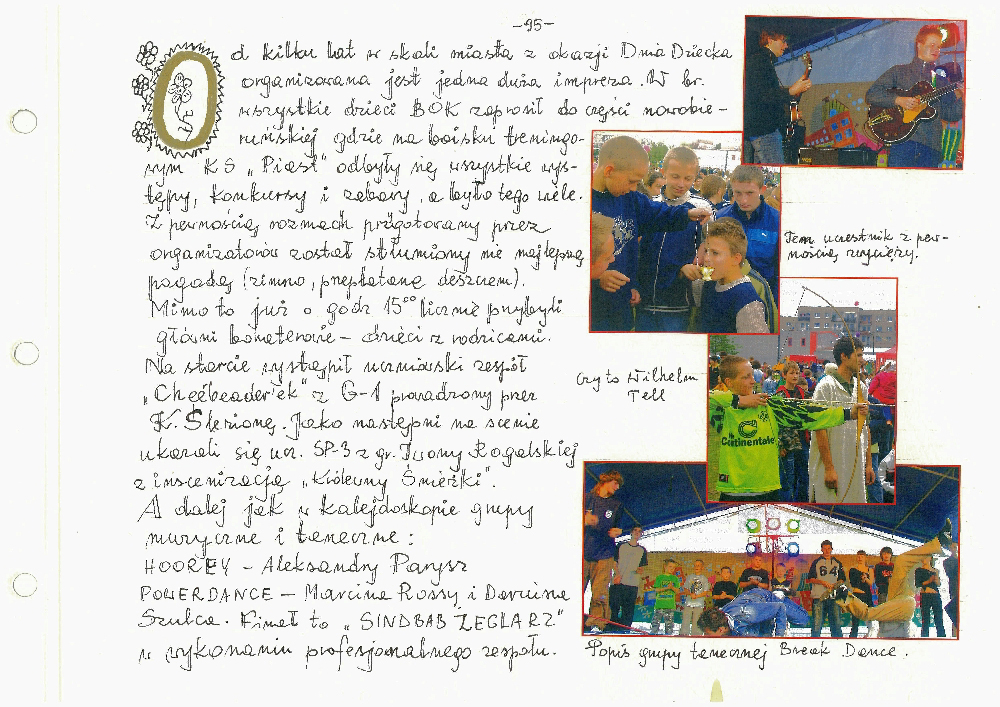 -95-
Od kilku lat w skali miasta z okazji Dnia Dziecka
organizowana jest jedna duża impreza. W br.
wszystkie dzieci BOK zaprosił do części nowobie-
ruńskiej gdzie na boisku treningo-
wym KS "Piast" odbyły się wszystkie wys-
tępy, konkursy i zabawy, a było tego wiele.
Z pewnością rozmach przygotowany przez
organizatorów został stłumiony nie najlepszą
pogodą (zimno, przeplatane deszczem).
Mimo to już o godz 15⁰⁰ licznie przybyli
główni bohaterowie - dzieci z rodzicami.
Na starcie wystąpił uczniowski zespół
"Cheebeader'ek" z G-1 prowadzony przez
K. Ślezionę. Jako następni na scenie
ukazali się ucz. SP-3 z gr. Iwony Rogalskiej
z inscenizacją "Królewny Śnieżki".
A dalej jak w kalejdoskopie grupy
muzyczne i taneczne:
HOOREY - Aleksandry Parysz
POWERDANCE - Marcina Rossy i Dariusza
Szulca. Finał to "SINDBAB ŻEGLARZ"
w wykonaniu profesjonalnego zespołu.
Ten uczestnik z pew-
nością zwycięży.
Czy to Wilhelm
Tell
Continentale
64
Popis grupy tanecznej Break Dance.